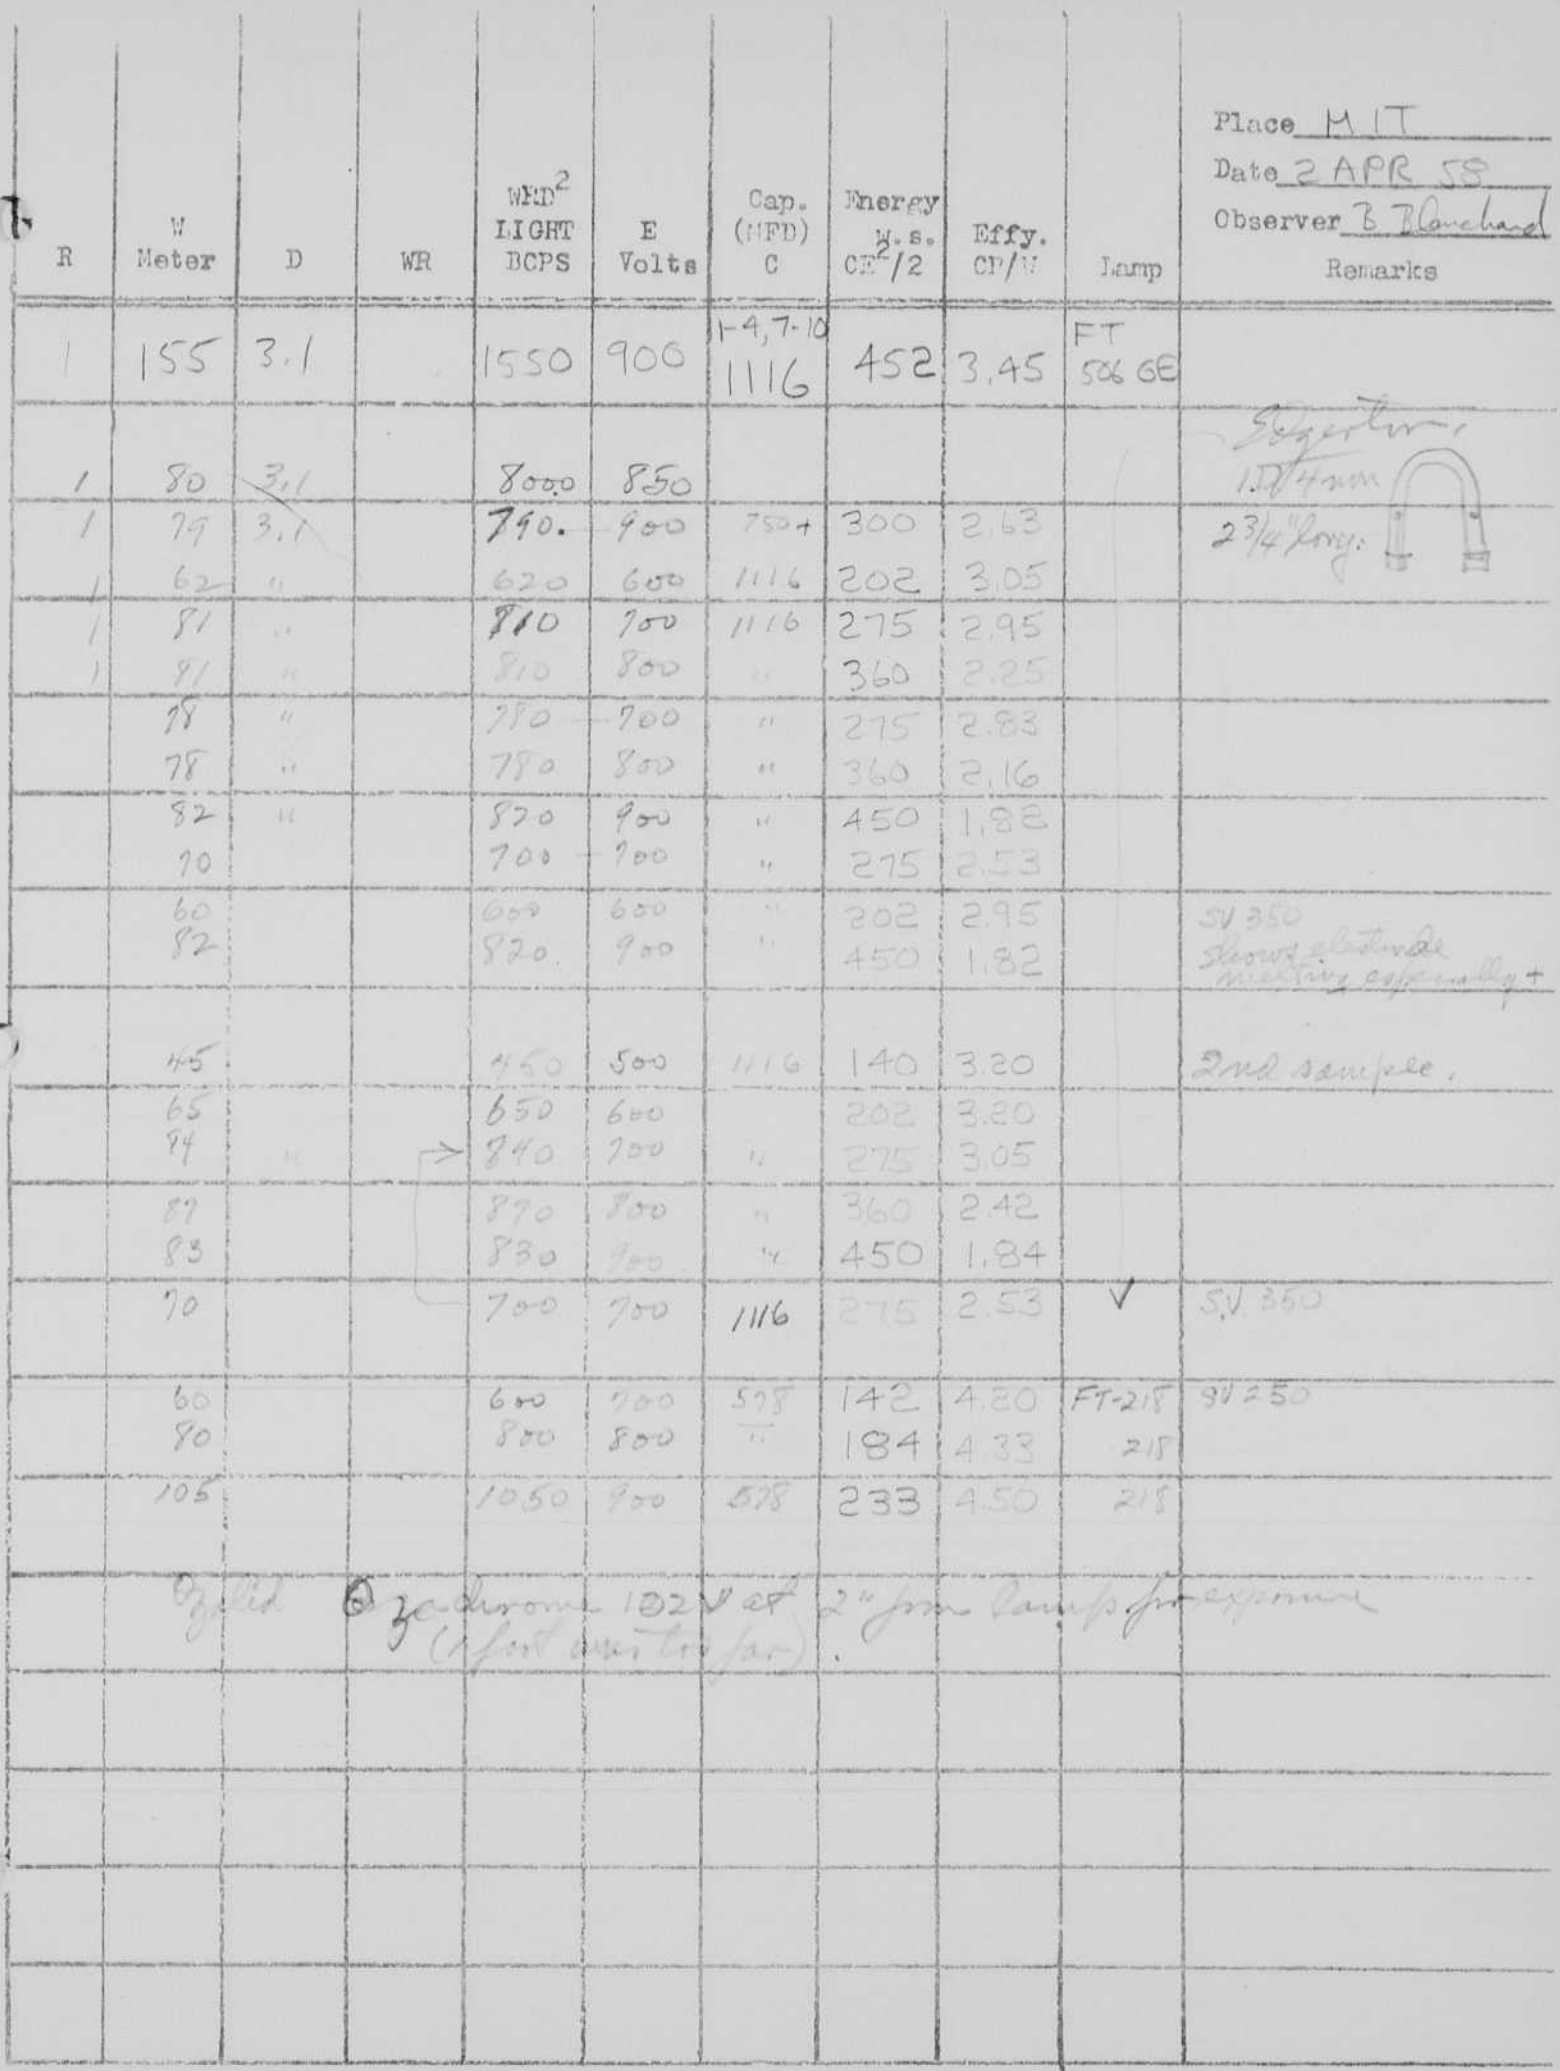 Place MIT
Date 2 APR 58
Observer B Blanchard
R W Meter D WR WRD2 LIGHT BCPS E Volts Cap. (MFD) C Energy w.s. CE2/2 Effy. CP/W Lamp Remarks
1 155 3.1 1550 900 1-4, 7-10 1116 452 3.45 FT 506 GE
Edgerton.
1 80 3.1 800.0 850 4mm
1 79 3.1 790. 900 750+ 300 2.63 2 3/4" long.
1 62 " 620 600 1116 202 3.05
1 81 " 810 700 1116 275 2.95
1 81 " 810 800 " 360 2.25
78 " 780 - 700 " 275 2.83
78 " 780 800 " 360 2.16
82 " 820 900 " 450 1.82
70 700 - 700 " 275 2.53
60 600 600 " 202 2.95 SV 350
82 820. 900 " 450 1.82 shows electrode
melting especially +
45 450 500 1116 140 3.20 2nd sample.
65 650 600 202 3.20
84 " → 840 700 " 275 3.05
87 870 800 " 360 2.42
83 830 900 " 450 1.84
70 700 700 1116 275 2.53 S.V. 350
60 600 700 578 142 4.20 FT-218 SV 250
80 800 800 " 184 4.33 218
105 1050 900 578 233 4.50 218
Ozalid Ozachrome 102 at 2" from lamp for exposure
(1 foot was too far).